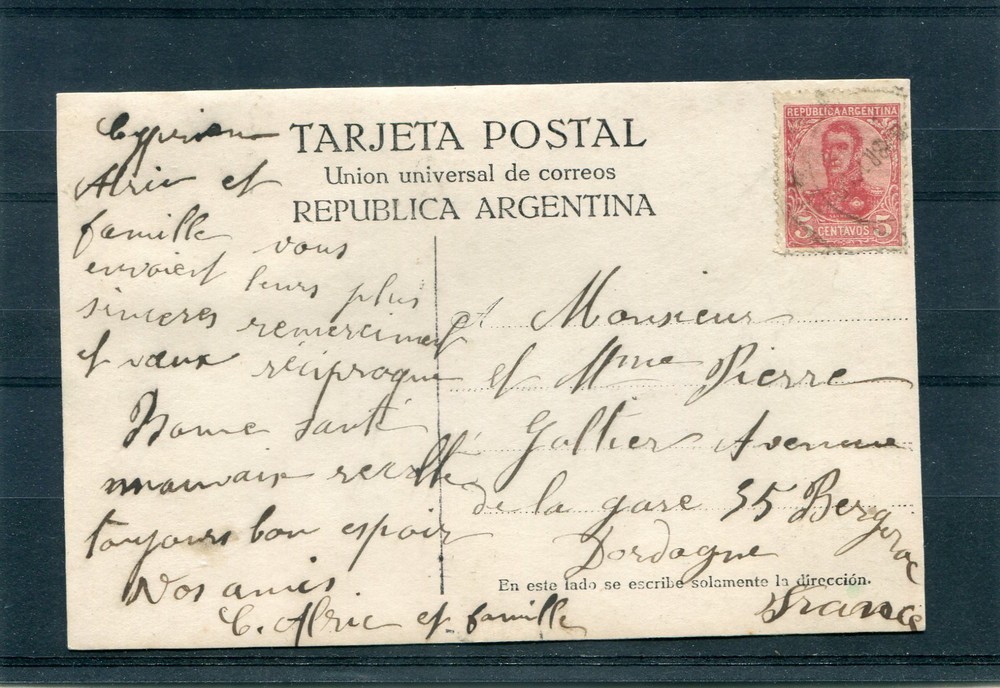 TARJETA POSTAL
Union universal de correos
REPUBLICA ARGENTINA
REPUBLICA ARGENTINA
5 CENTAVOS 5
Cyprien
Alric et
famille vous
envoient leurs plus
sinceres remerciment
et vœux réciproque
Bonne santé
mauvaise recolte
toujours bon espoir
Vos amis
C. Alric et famille
A Monsieur
et Mme Pierre
Galtier Avenue
de la gare 35 Bergerac
Dordogne
En este lado se escribe solamente la dirección.
France